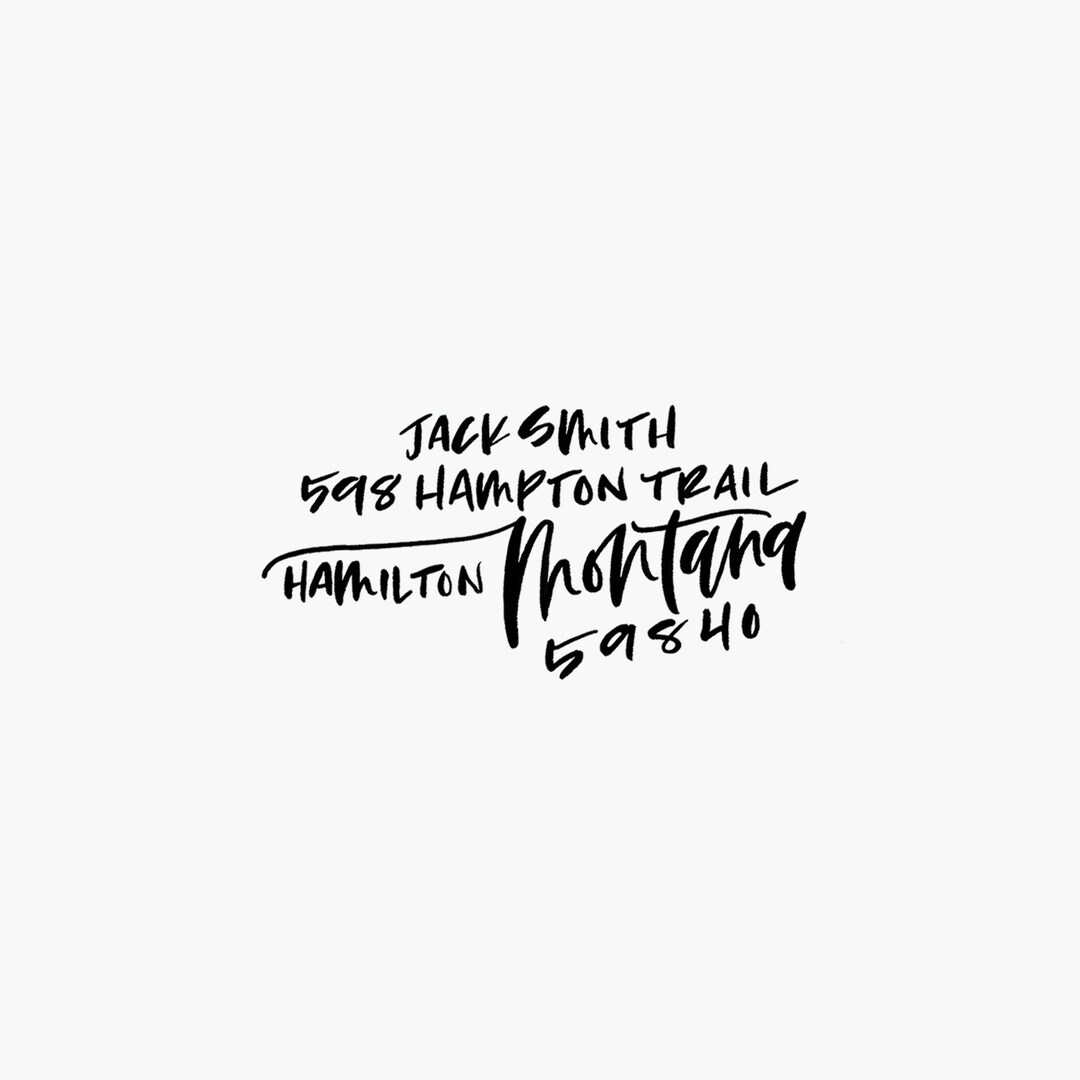 JACK SMITH
598 HAMPTON TRAIL
HAMILTON Montana
59840